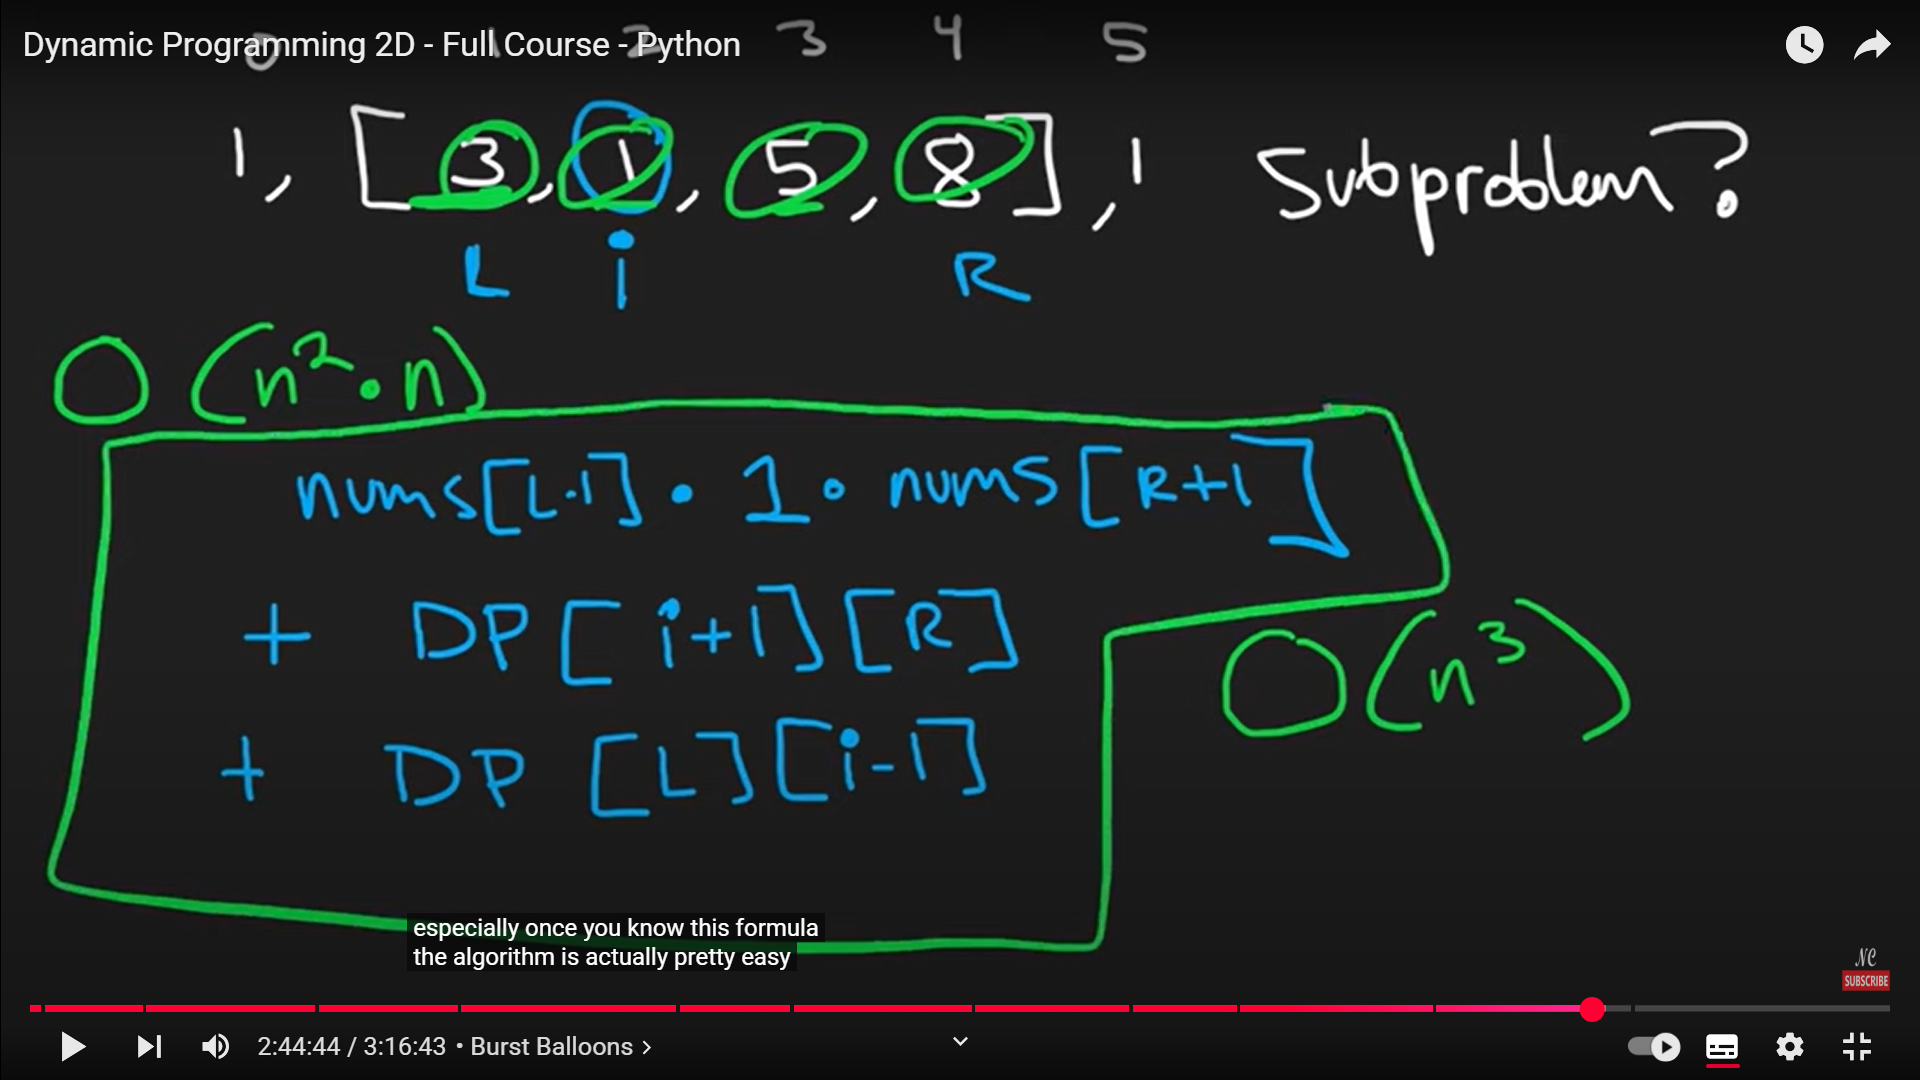 Dynamic Programming 2D - Full Course - Python
0 1 2 3 4 5
1, [3, 1, 5, 8], 1 Subproblem?
L i R
O(n²·n)
nums[L-1] · 1 · nums[R+1]
+ DP[i+1][R]
O(n³)
+ DP[L][i-1]
especially once you know this formula
the algorithm is actually pretty easy
NC
SUBSCRIBE
2:44:44 / 3:16:43 • Burst Balloons >